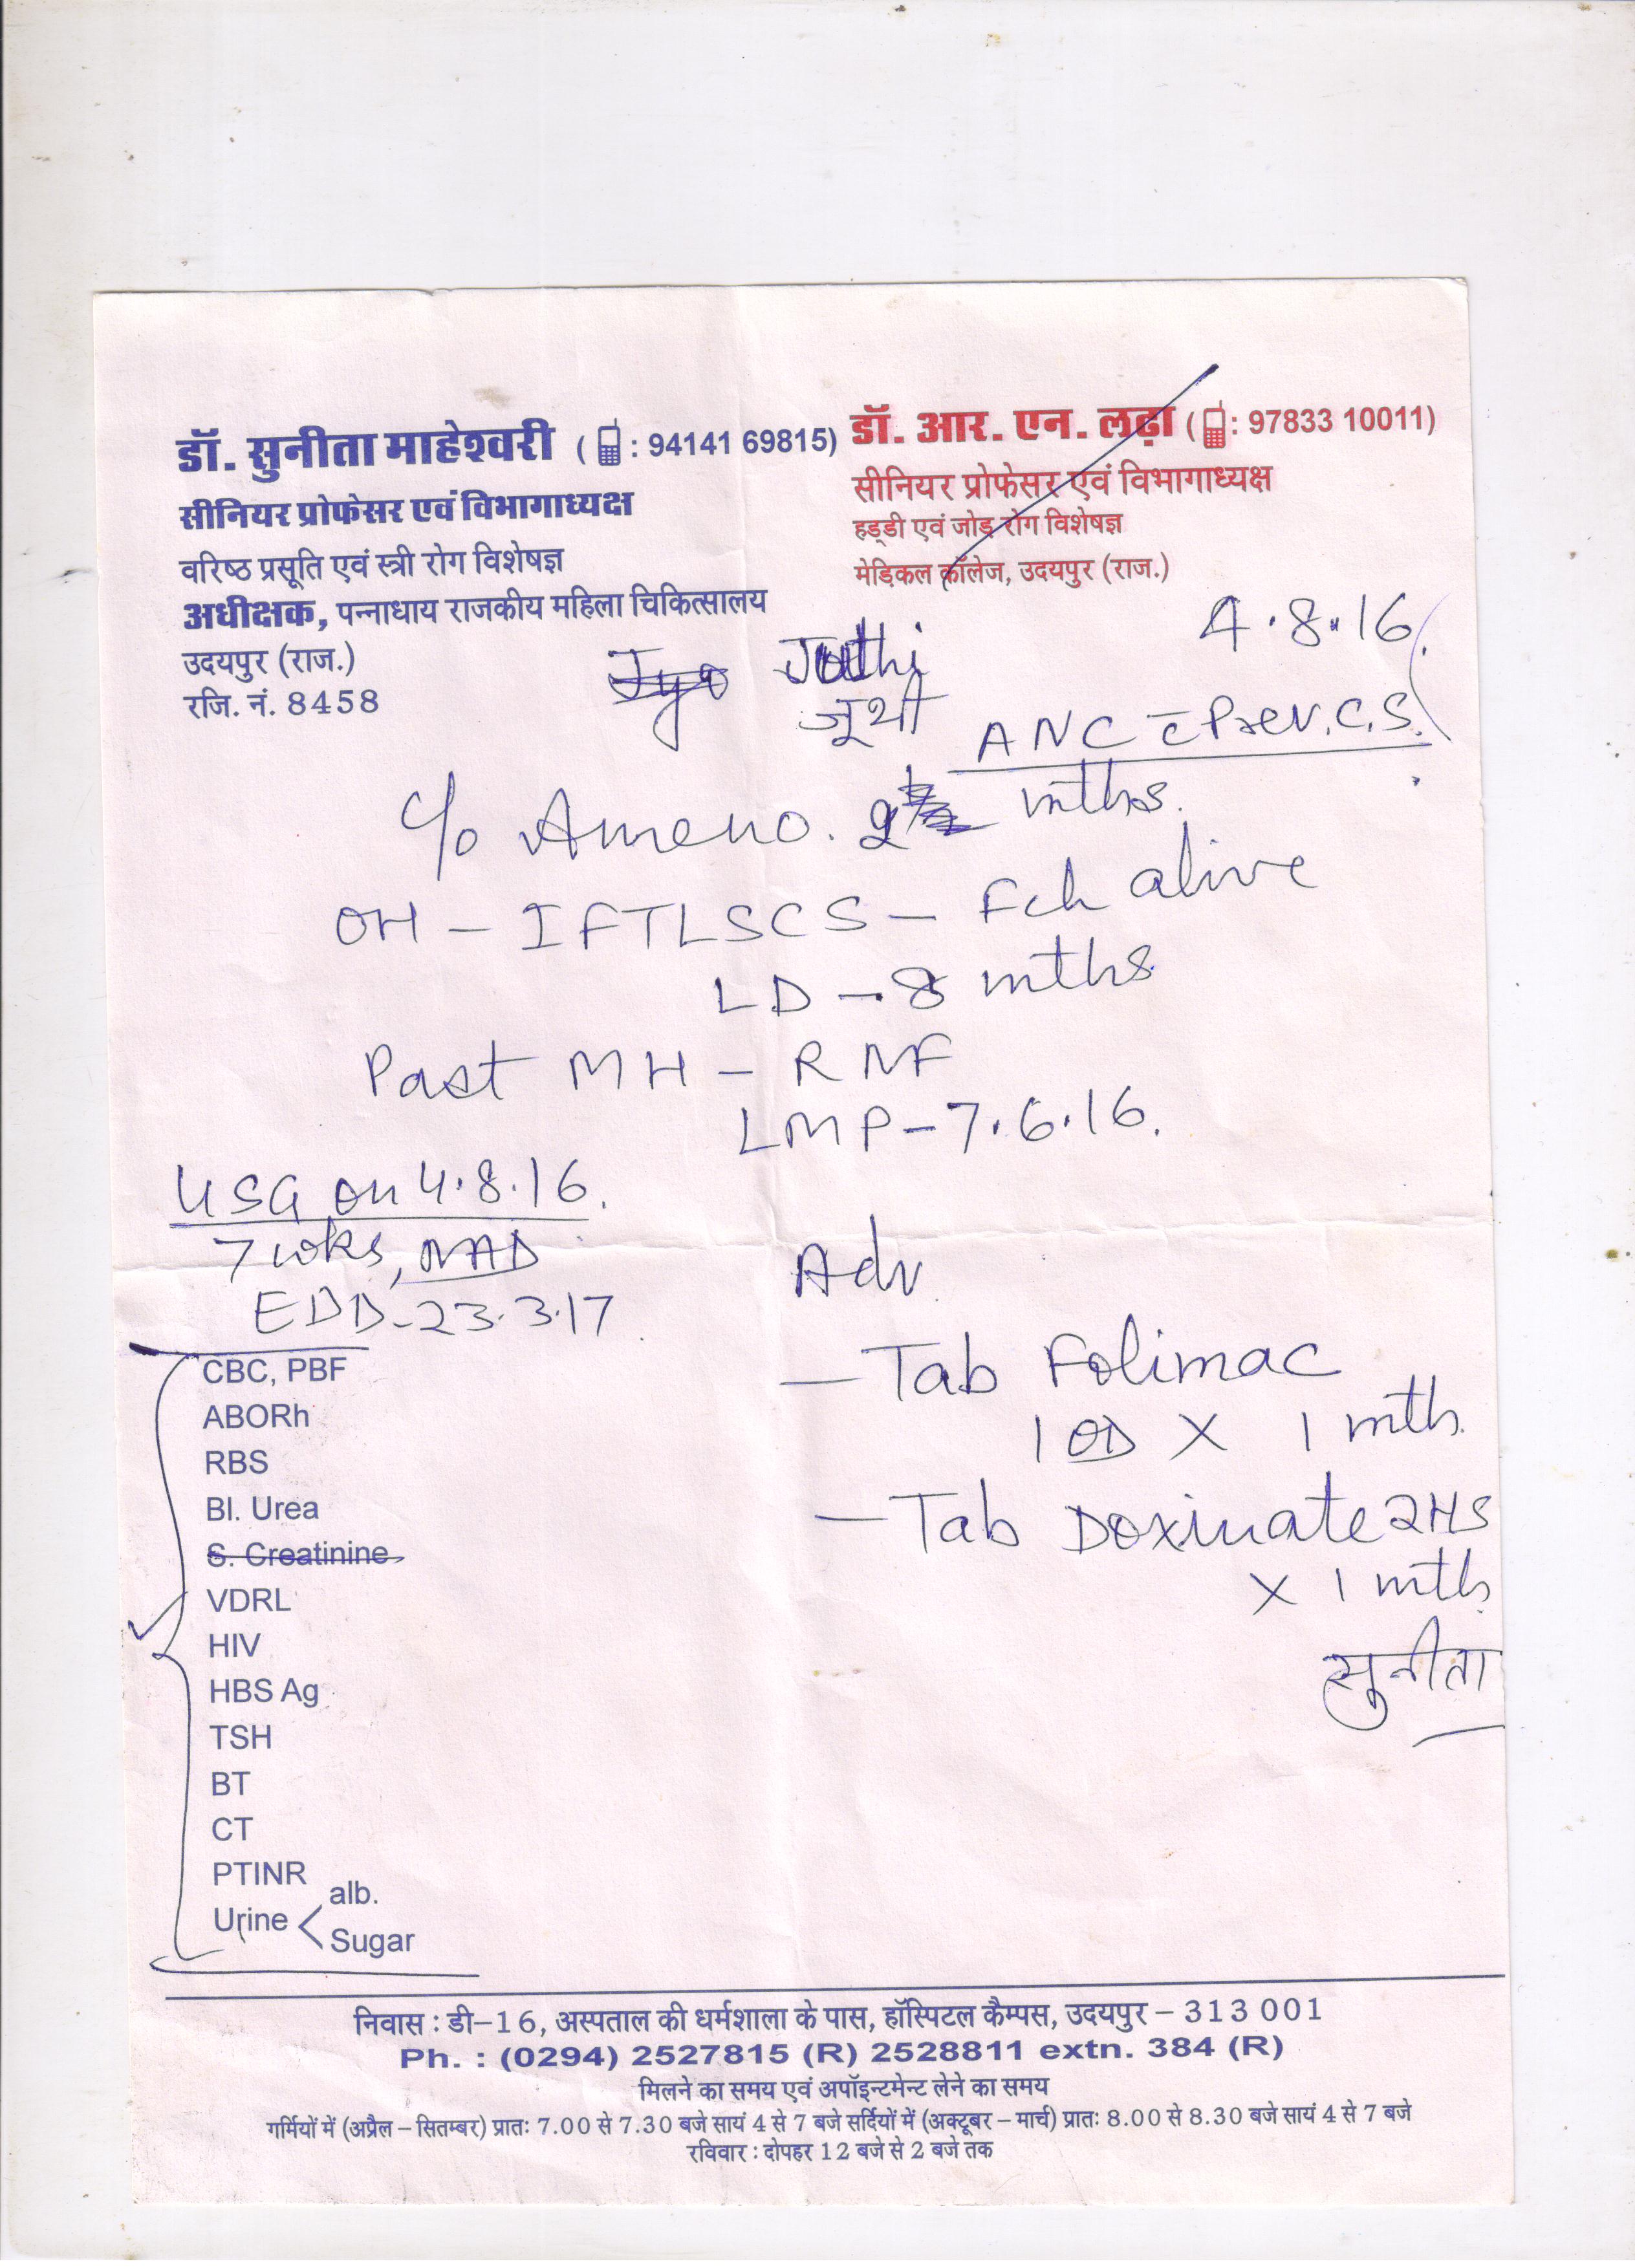 डॉ. सुनीता माहेश्वरी ( : 94141 69815)
सीनियर प्रोफेसर एवं विभागाध्यक्ष
वरिष्ठ प्रसूति एवं स्त्री रोग विशेषज्ञ
अधीक्षक, पन्नाधाय राजकीय महिला चिकित्सालय
उदयपुर (राज.)
रजि. नं. 8458
डॉ. आर. एन. लढ़ा ( : 97833 10011)
सीनियर प्रोफेसर एवं विभागाध्यक्ष
हड्डी एवं जोड़ रोग विशेषज्ञ
मेडिकल कॉलेज, उदयपुर (राज.)
4.8.16
Juthi
जूथी
ANC c̄ Prev. C.S.
c/o Ameno. 2 mths.
OH - IFTLSCS - Fch alive
LD - 8 mths
Past MH - RNF
LMP - 7.6.16.
USG on 4.8.16.
7 wks, NAD
EDD - 23.3.17
CBC, PBF
ABORh
RBS
Bl. Urea
S. Creatinine
VDRL
HIV
HBS Ag
TSH
BT
CT
PTINR
Urine < alb.
Sugar
Adv
- Tab Folimac
1 OD X 1 mth.
- Tab Doxinate 2HS
X 1 mth
सुनीता
निवास : डी-16, अस्पताल की धर्मशाला के पास, हॉस्पिटल कैम्पस, उदयपुर - 313 001
Ph. : (0294) 2527815 (R) 2528811 extn. 384 (R)
मिलने का समय एवं अपॉइन्टमेन्ट लेने का समय
गर्मियों में (अप्रैल - सितम्बर) प्रातः 7.00 से 7.30 बजे सायं 4 से 7 बजे सर्दियों में (अक्टूबर - मार्च) प्रातः 8.00 से 8.30 बजे सायं 4 से 7 बजे
रविवार : दोपहर 12 बजे से 2 बजे तक